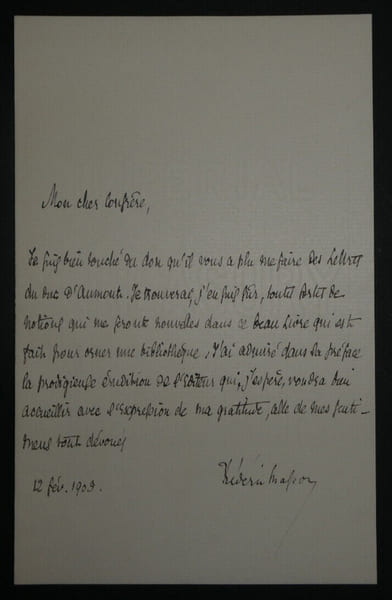 Mon cher Confrère,
Je suis bien touché du don qu'il vous a plu me faire des Lettres
du Duc d'Aumont. Je trouverai, j'en suis sûr, toutes sortes de
notions qui me seront nouvelles dans ce beau livre qui est
fait pour orner une bibliothèque, j'ai admiré dans la préface
la prodigieuse érudition de l'Editeur qui, j'espère, voudra bien
accueillir avec l'expression de ma gratitude, celle de mes senti-
mens tout dévoués
12 fév. 1903.
Frédéric Masson